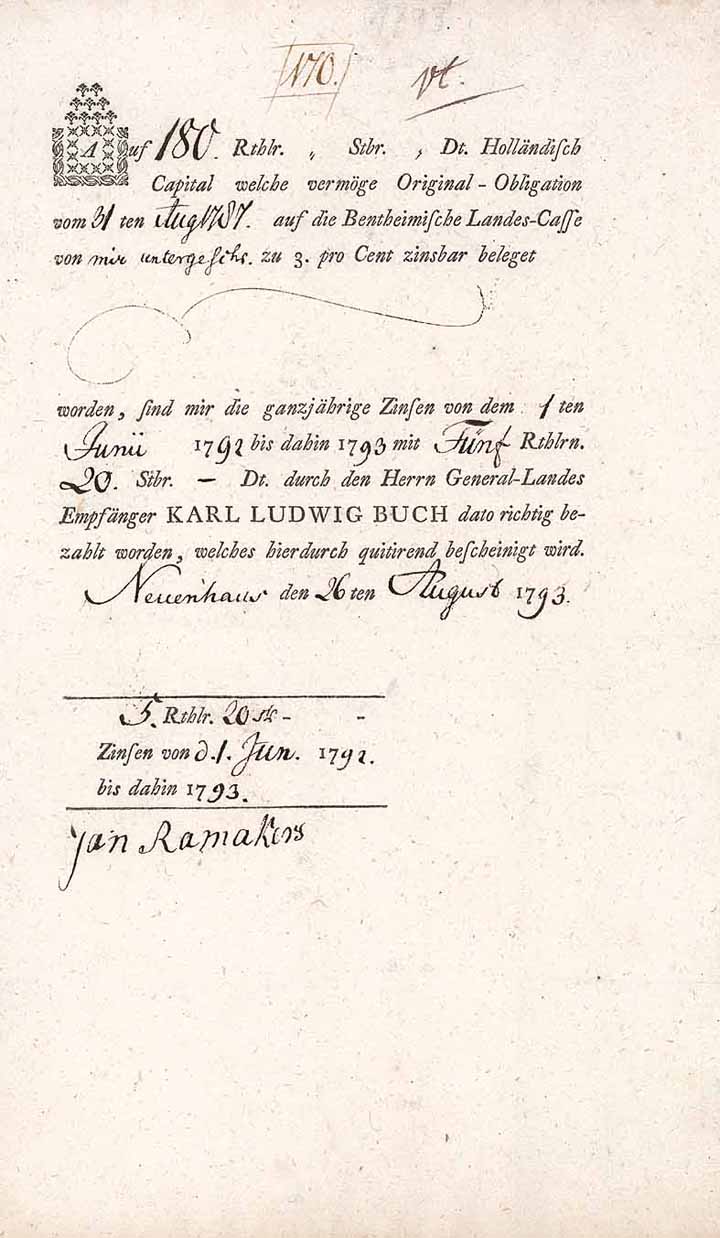 170. vt.
Auf 180. Rthlr. „ Stbr. , Dt. Holländiſch
Capital welche vermöge Original - Obligation
vom 31 ten Aug 1787. auf die Bentheimiſche Landes-Caſſe
von mir untergeſchr. zu 3. pro Cent zinsbar beleget
worden, ſind mir die ganzjährige Zinſen von dem 1 ten
Junii 1792 bis dahin 1793 mit Fünf Rthlrn.
20. Stbr. — Dt. durch den Herrn General-Landes
Empfänger KARL LUDWIG BUCH dato richtig be-
zahlt worden, welches hierdurch quitirend beſcheinigt wird.
Neuenhaus den 26 ten August 1793.
5. Rthlr. 20 stb - -
Zinſen von d. 1. Jun. 1792.
bis dahin 1793.
Jan Ramakers